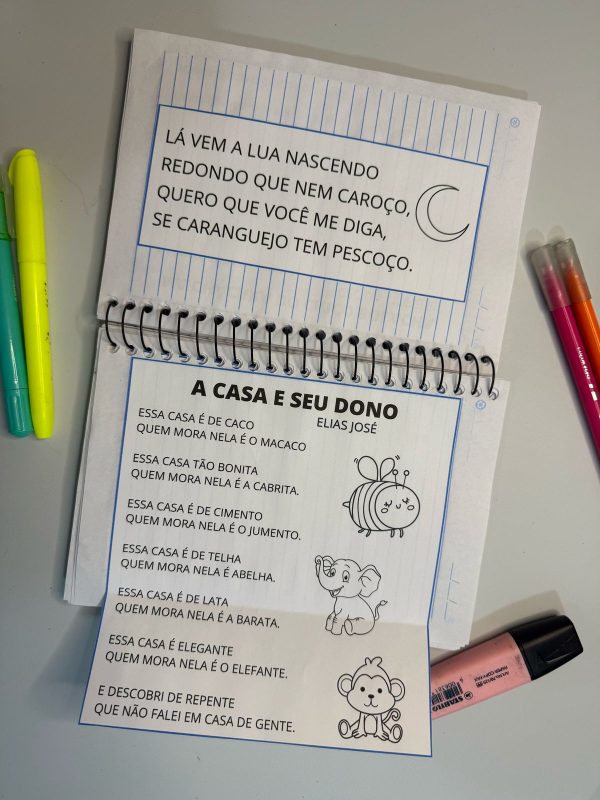 LÁ VEM A LUA NASCENDO
REDONDO QUE NEM CAROÇO,
QUERO QUE VOCÊ ME DIGA,
SE CARANGUEJO TEM PESCOÇO.
A CASA E SEU DONO
ELIAS JOSÉ
ESSA CASA É DE CACO
QUEM MORA NELA É O MACACO
ESSA CASA TÃO BONITA
QUEM MORA NELA É A CABRITA.
ESSA CASA É DE CIMENTO
QUEM MORA NELA É O JUMENTO.
ESSA CASA É DE TELHA
QUEM MORA NELA É ABELHA.
ESSA CASA É DE LATA
QUEM MORA NELA É A BARATA.
ESSA CASA É ELEGANTE
QUEM MORA NELA É O ELEFANTE.
E DESCOBRI DE REPENTE
QUE NÃO FALEI EM CASA DE GENTE.
STABILO